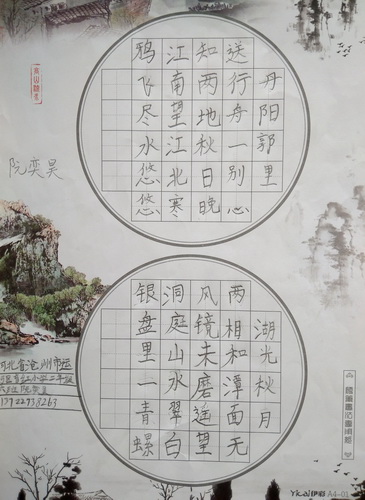 丹阳郭里
送行舟一别心
知两地秋日晚
江南望江北寒
鸦飞尽水悠悠
阮奕昊
湖光秋月
两相和潭面无
风镜未磨遥望
洞庭山水翠白
银盘里一青螺
河北省沧州市运
小学二年级
A4-01